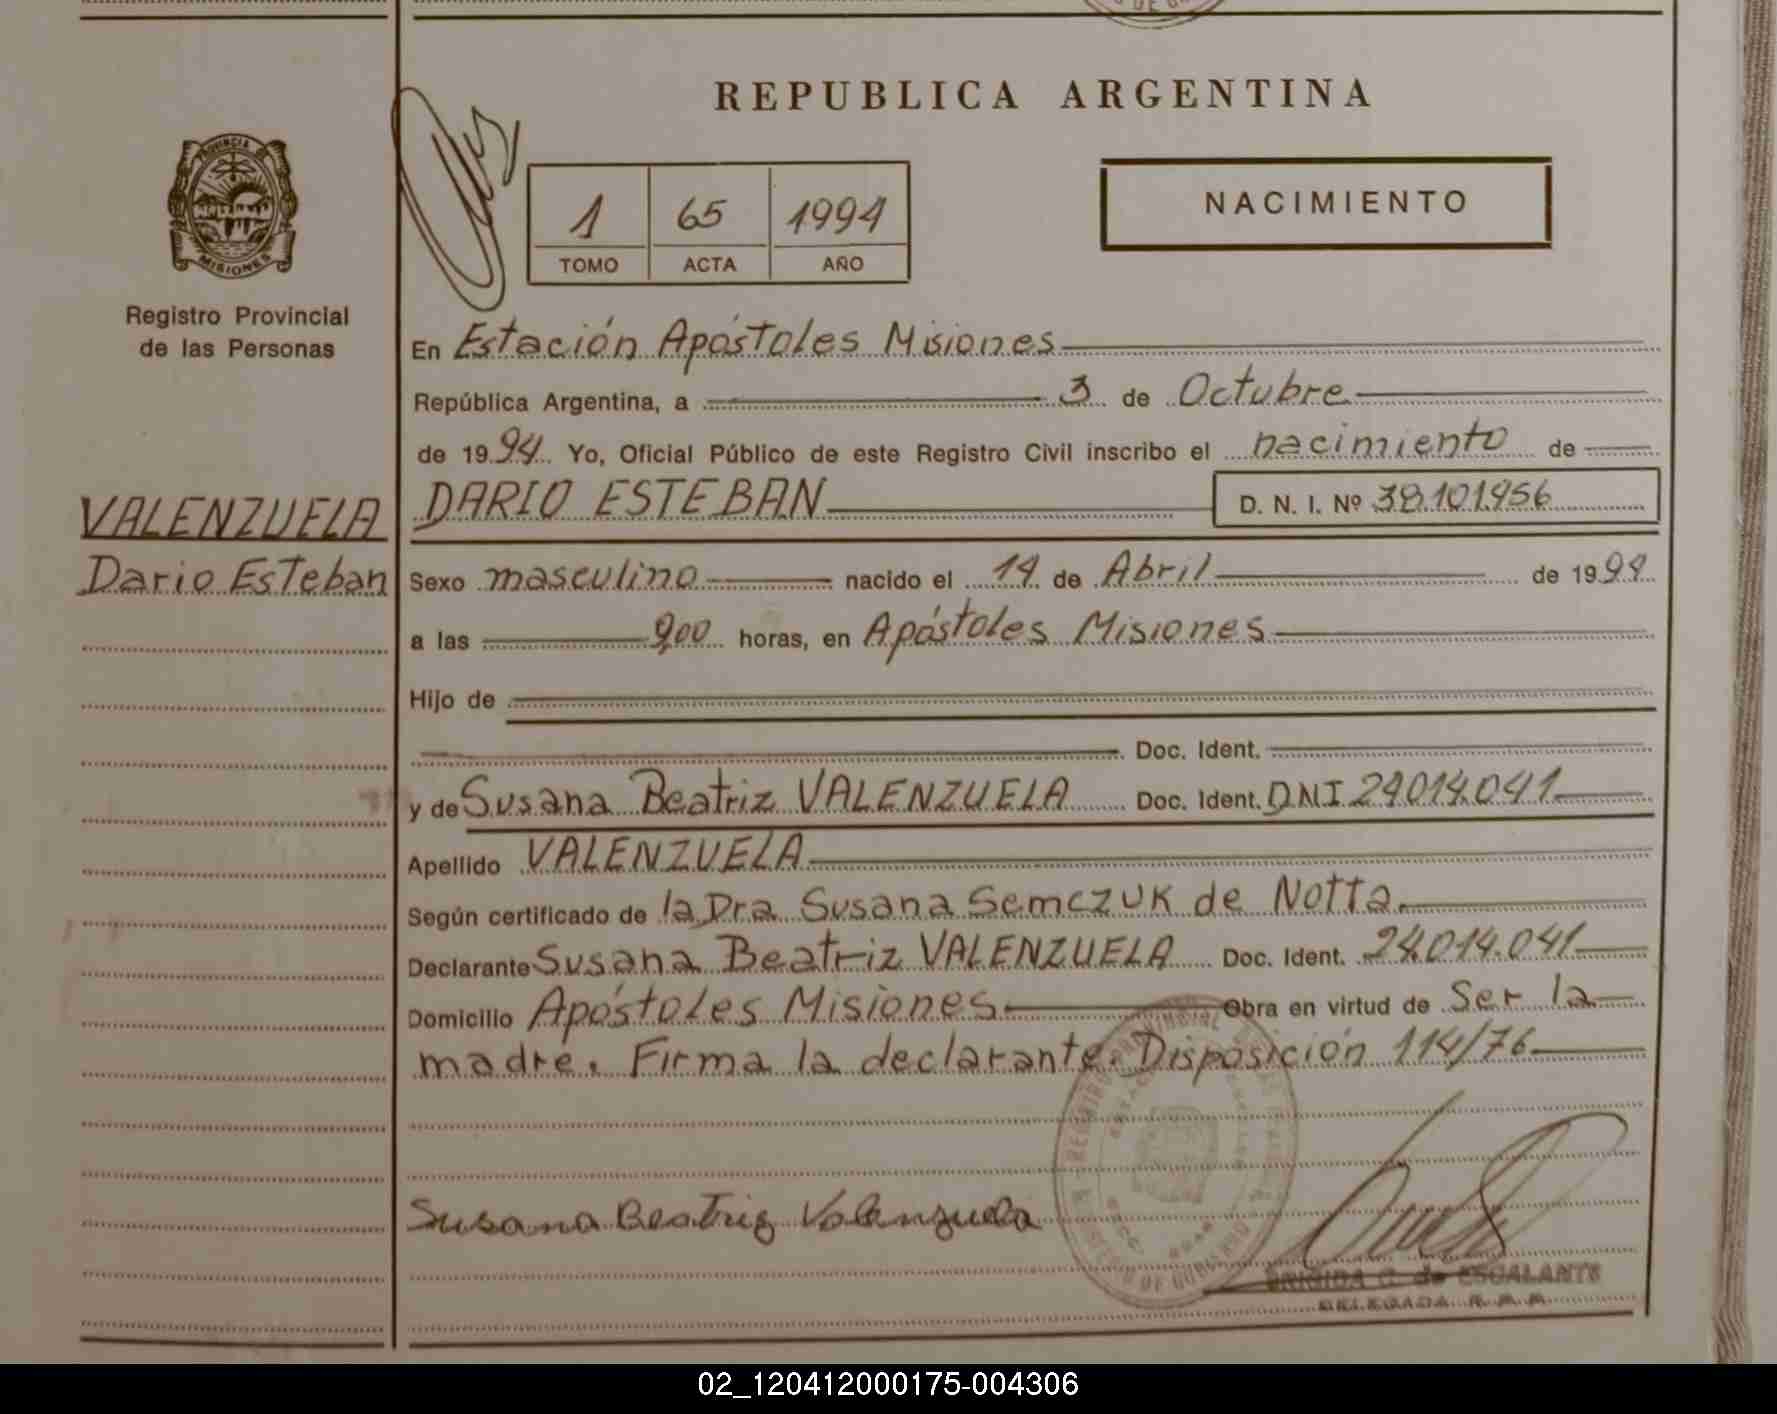 REPUBLICA ARGENTINA
PROVINCIA DE
MISIONES
Registro Provincial
de las Personas
1 65 1994
TOMO ACTA AÑO
NACIMIENTO
En Estación Apóstoles Misiones
República Argentina, a 3 de Octubre
de 1994 Yo, Oficial Público de este Registro Civil inscribo el nacimiento de
VALENZUELA
Dario Esteban
DARIO ESTEBAN D. N. I. Nº 38.101.956
Sexo masculino nacido el 14 de Abril de 1994
a las 9,00 horas, en Apóstoles Misiones
Hijo de
Doc. Ident.
y de Susana Beatriz VALENZUELA Doc. Ident. DNI 24.014.041
Apellido VALENZUELA
Según certificado de la Dra Susana Semczuk de Notta.
Declarante Susana Beatriz VALENZUELA Doc. Ident. 24.014.041
Domicilio Apóstoles Misiones Obra en virtud de Ser la
madre. Firma la declarante. Disposición 114/76
Susana Beatriz Valenzuela
BRIGIDA G. de ESCALANTE
DELEGADA R.P.P.
02_120412000175-004306